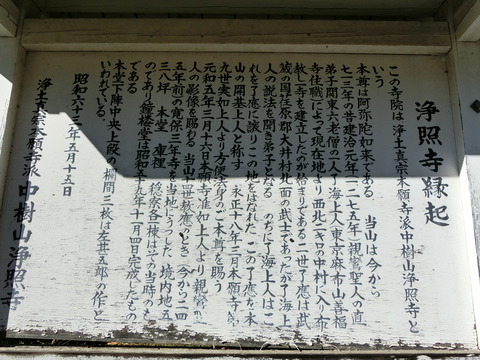 浄照寺縁起
この寺院は浄土真宗本願寺派中樹山浄照寺と
いう
本尊は阿弥陀如来である 当山は今から
七一三年の昔建治元年(一二七五年)親鸞聖人の直
弟子関東六老僧の一人了海上人(東京麻布山善福
寺住職)によって現在地より西北二キロの中村に入り布
教し一寺を建立したのが始まりである 二世了応は武
蔵の国荏原郡大井村北面の武士であったが了海上
人の説法を聞き弟子となる のちに了海上人はこ
れを了応に譲りこの地をはなれた この了応を本
山の開基上人と称す 永正十八年三月本願寺
九世実如上人より方便法身のご本尊を賜う
元和五年三月十六日本願寺准如上人より親鸞
人の影像を賜わる 当山 のとき 今から二四
五年前の寛保三年寺を当地にうつした 境内地五
三八坪 本堂 庫裡 各棟はすべて当時のも
のであり鐘楼堂は昭和五 年十一月四日完成したもの
である
本堂下陣中央上段の欄間三枚は左甚五郎の作と
いわれている。
昭和六十三年五月十五日
浄土真宗本願寺派中樹山浄照寺